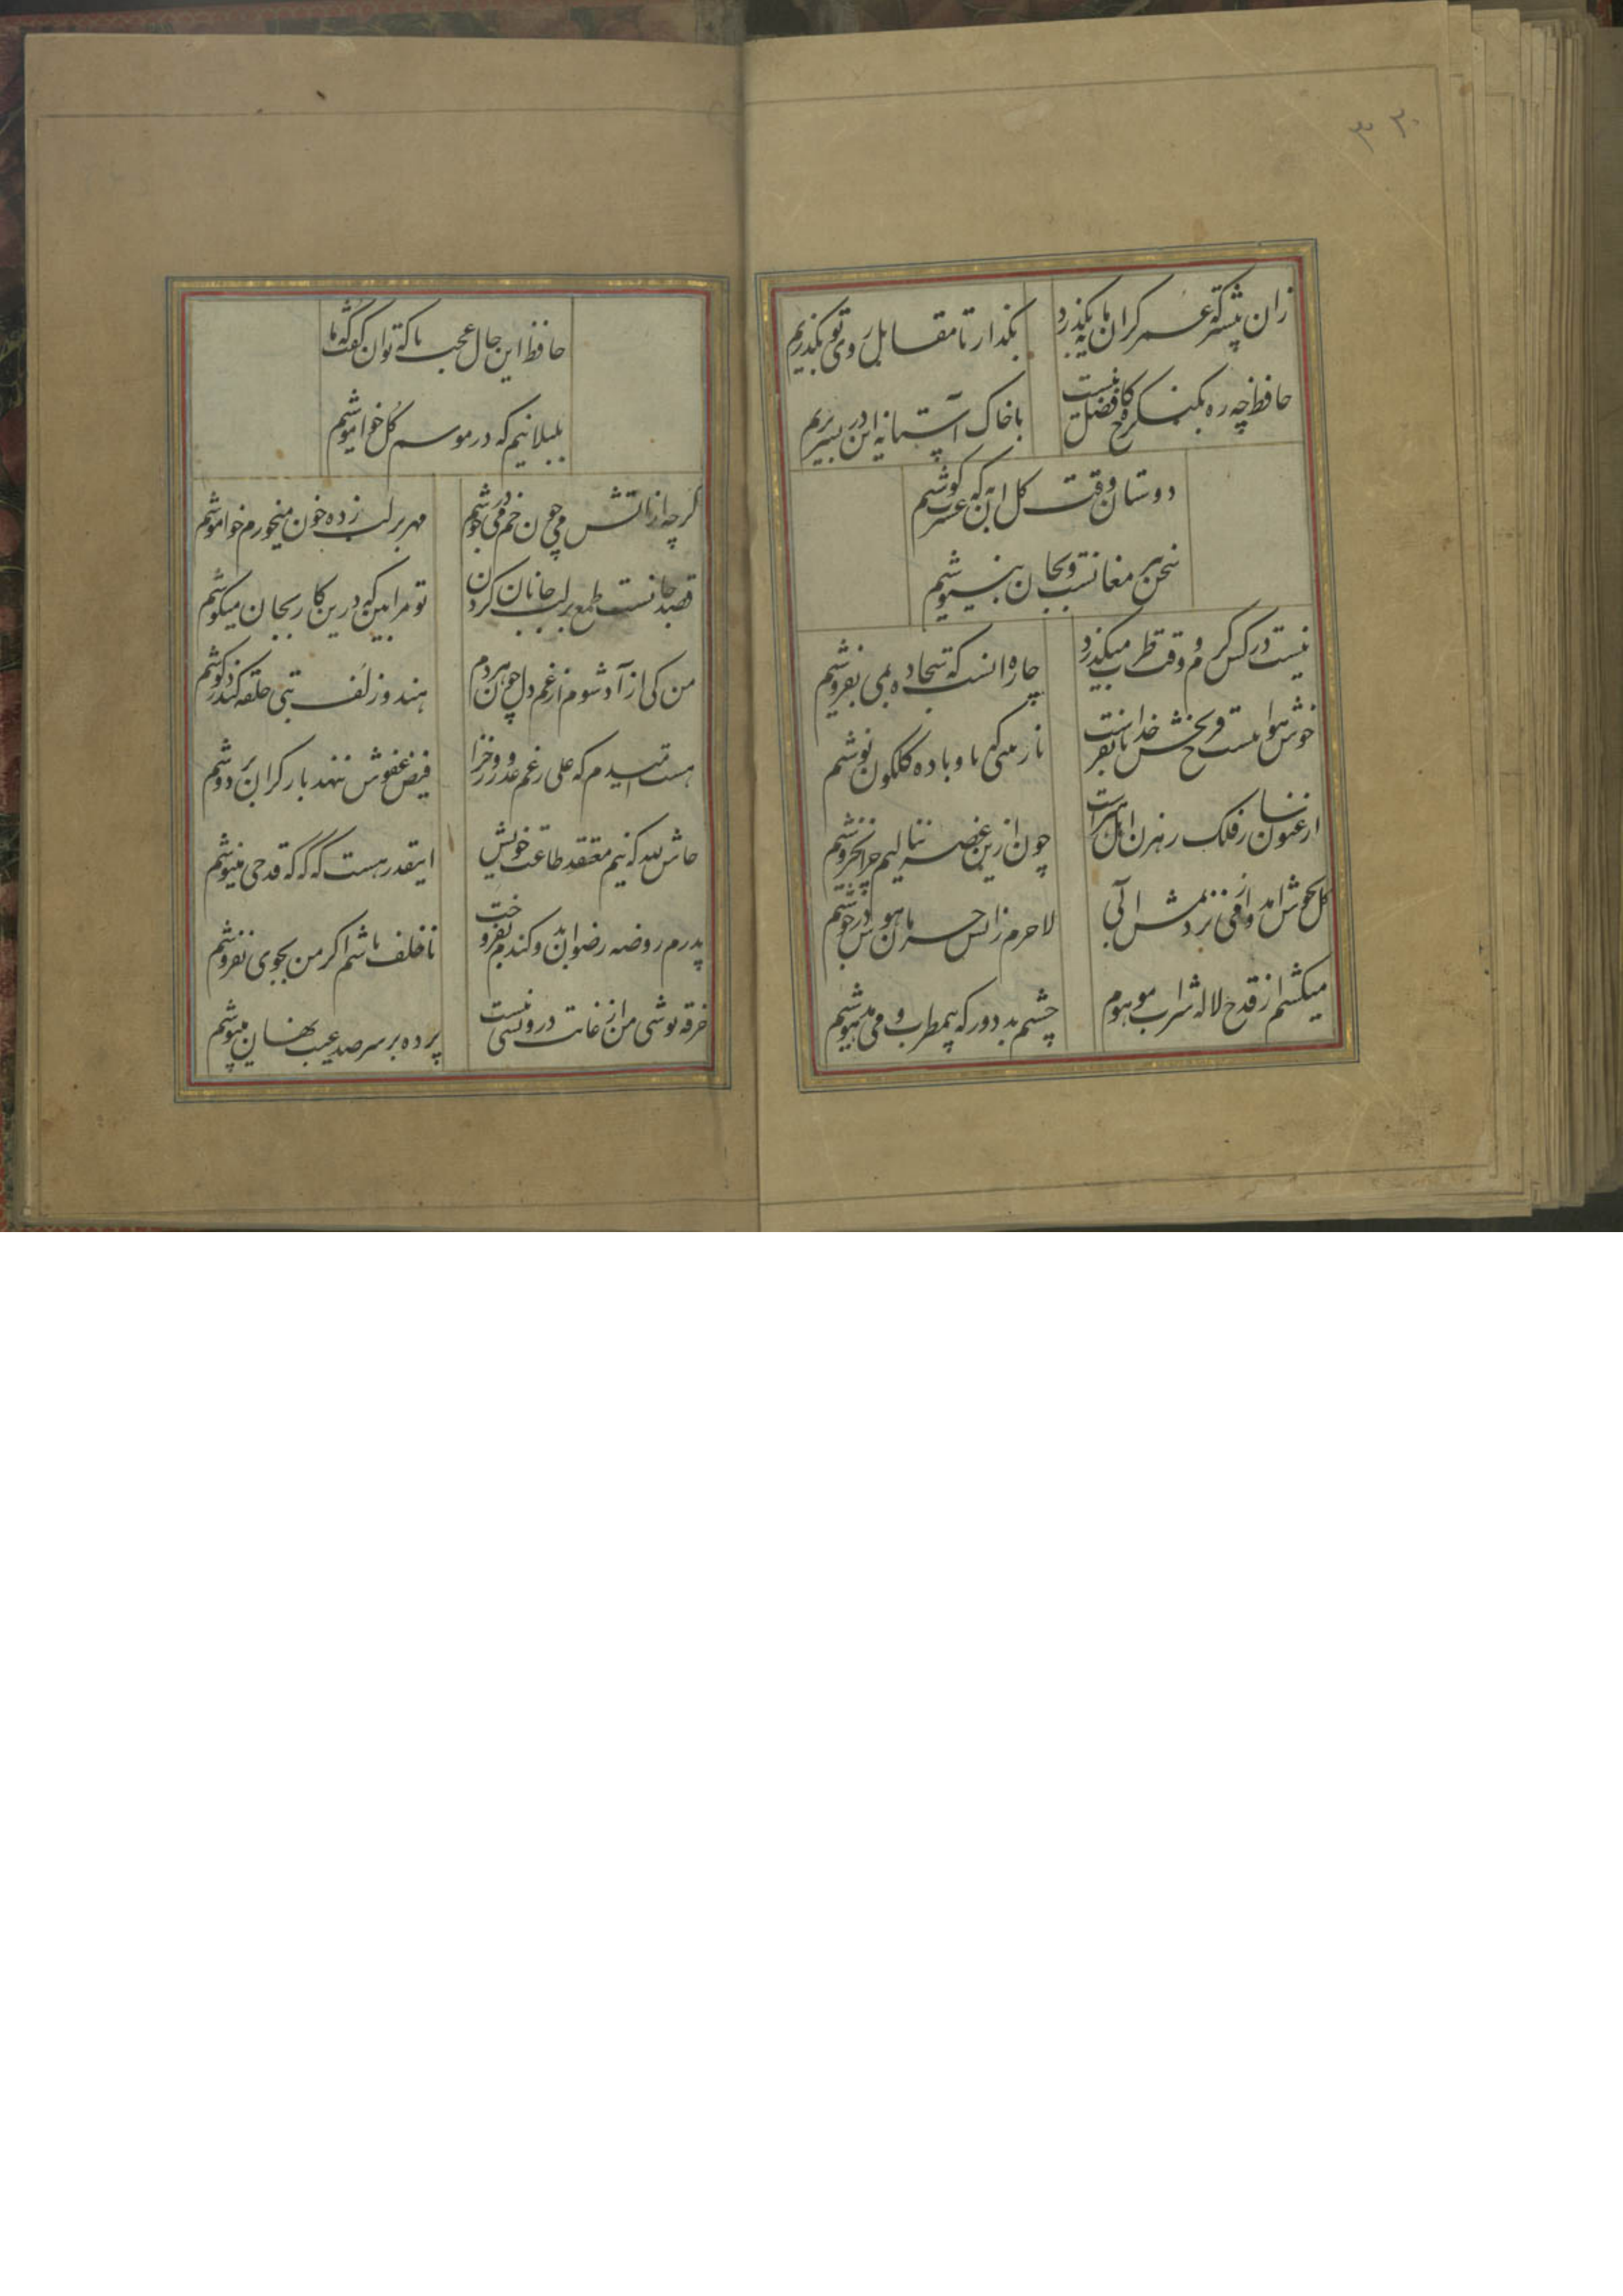 ۳۳۰
زان پیشتر که عمر کرانمایه بکذرد بکذار تا مقابل روی تو بکذریم
حافظ چه ره بکنکره کاخ فضل نیست با خاک آستانه این در بسر بریم
دوستان وقت کل آن به که بعشرت کوشیم
سخن پیر مغانست و بجان بنیوشیم
نیست در کس کرم و وقت طرب میکذرد چاره آنست که سجاده بمی بفروشیم
خوش هواییست فرح بخش خدایا بفرست نازنینی که با و باده کلکون نوشیم
ارغنون ساز فلک رهزن اهل هنرست چون ازین غصه ننالیم و چرا نخروشیم
کل بجوش امد و از می نزدیمش آبی لاجرم زاتش حرمان و هوس در جوشیم
میکشیم از قدح لاله شراب موهوم چشم بد دور که بیمطرب و می مدهوشیم
حافظ این حال عجب با که توان کفت که ما
بلبلانیم که در موسم کل خاموشیم
کرچه از اتش می چون خم می در جوشم مهر بر لب زده خون میخورم و خاموشم
قصد جانست طمع بر لب جانان کردن تو مرا بین که درین کار بجان میکوشم
من کی ازاد شوم از غم دل چون هر دم هندو زلف بتی حلقه کند در کوشم
هست امیدم که علی رغم عدو روز جزا فیض عفوش ننهد بار کران بر دوشم
حاش لله که نیم معتقد طاعت خویش اینقدر هست که که که قدحی مینوشم
پدرم روضه رضوان بدو کندم بفروخت ناخلف باشم اکر من بجوی نفروشم
خرقه پوشی من از غایت دیو نیست پرده بر سر صد عیب نهان میپوشم